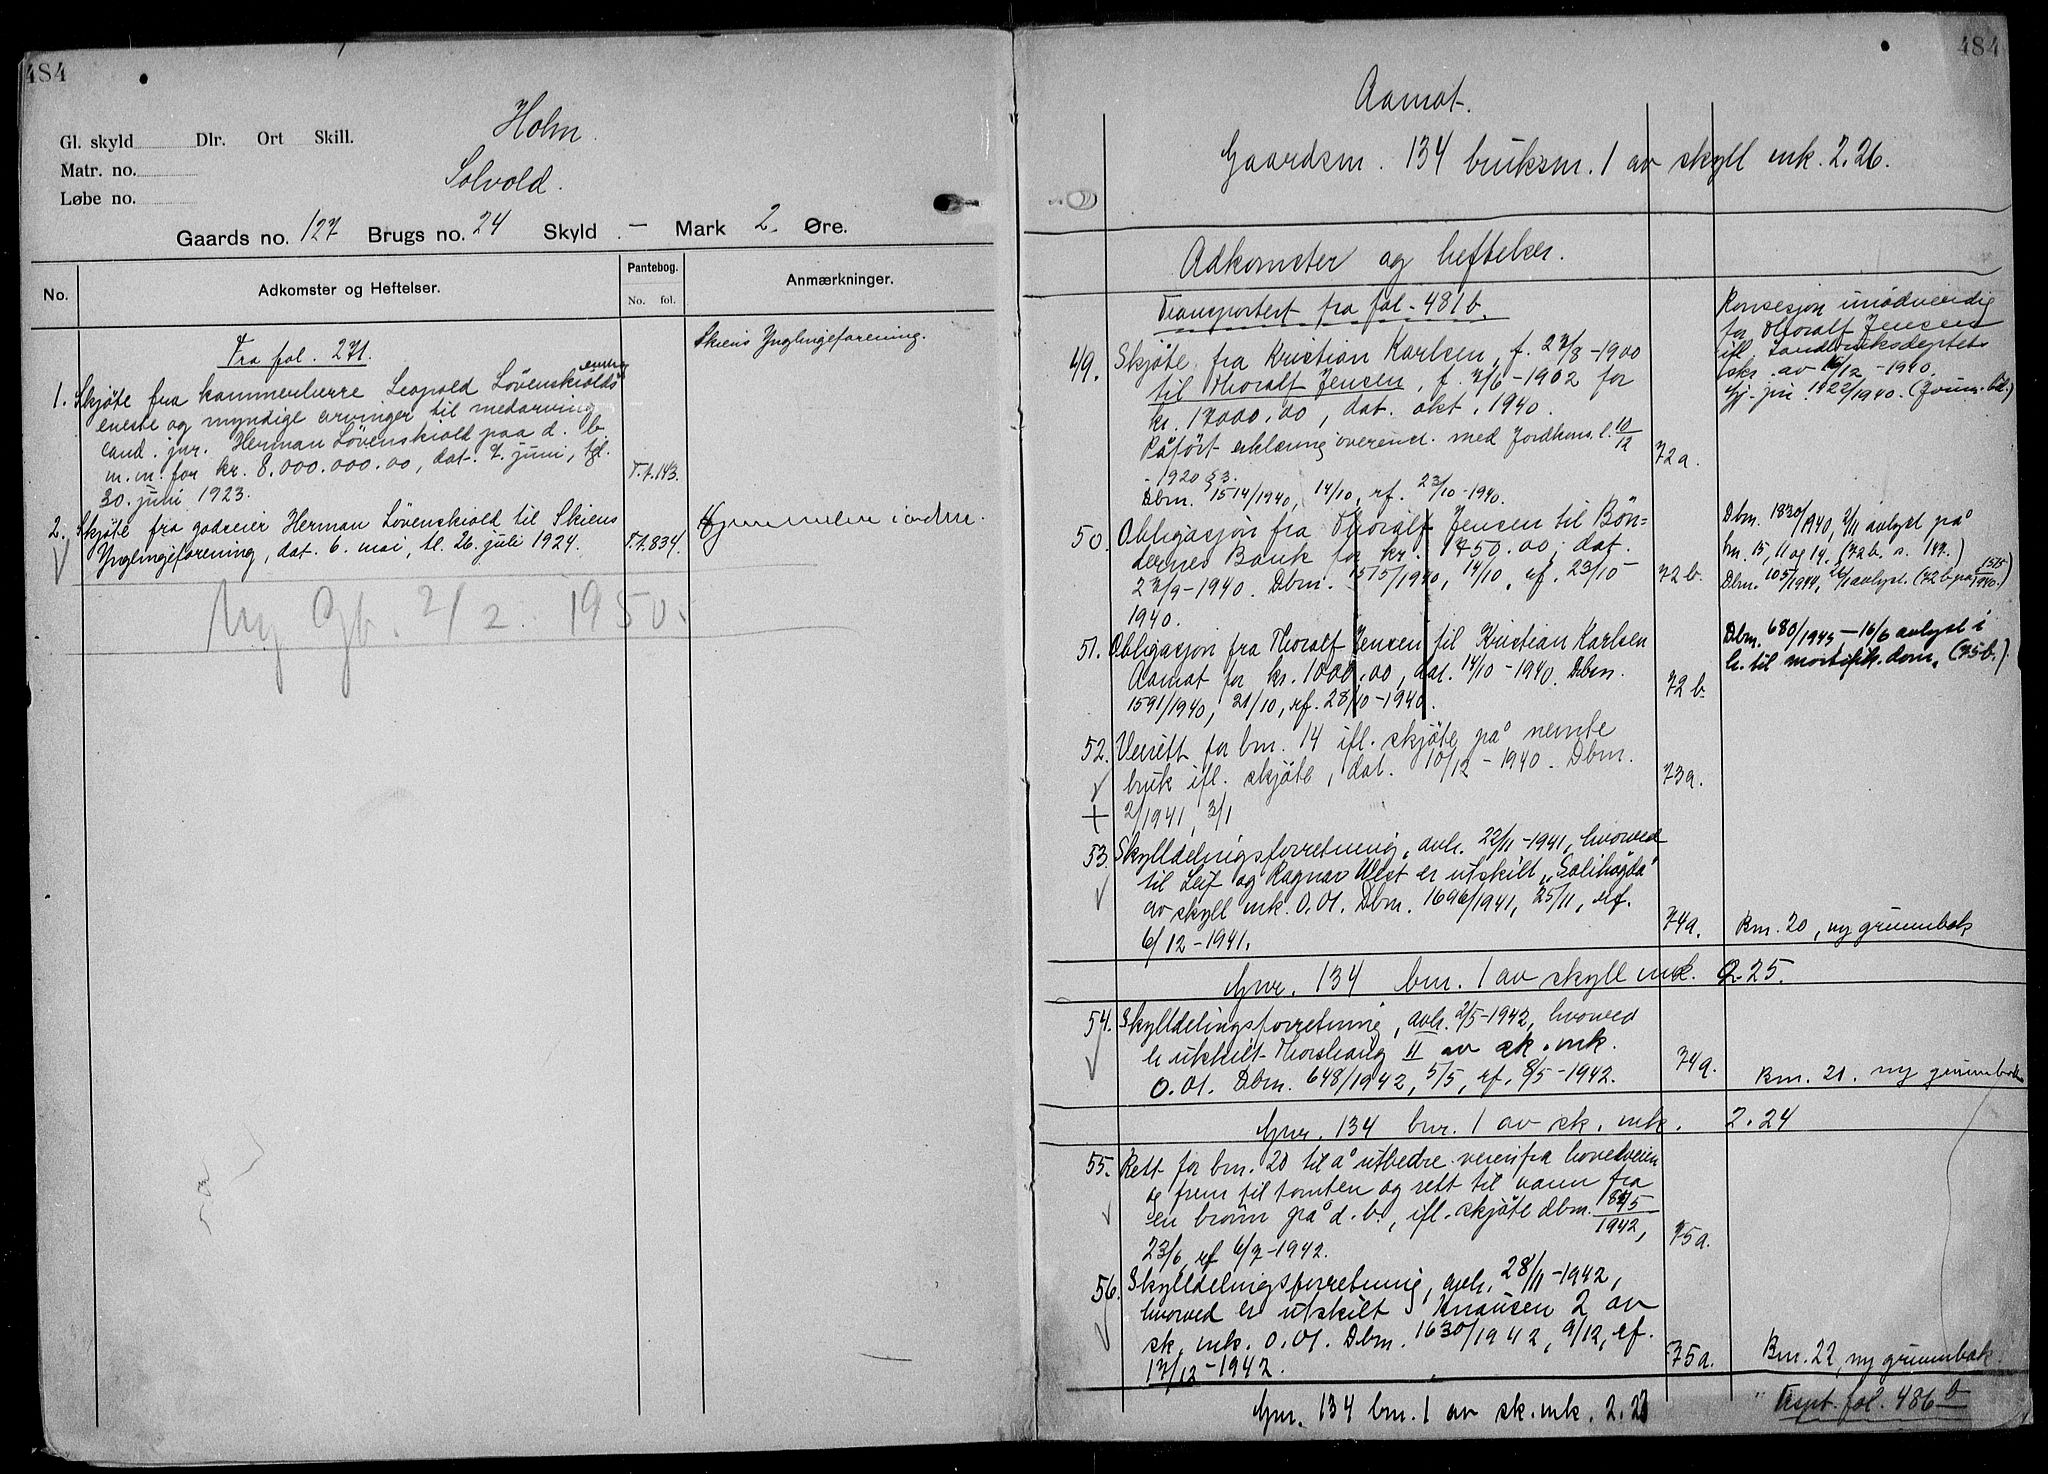 484
Holm.
Solvold.
Gl. skyld Dlr. Ort Skill.
Matr. no.
Løbe no.
Gaards no. 127 Brugs no. 24 Skyld - Mark 2 Øre.
No. Adkomster og Heftelser. Pantebog. No. fol. Anmærkninger.
Fra fol. 271.
Skiens Ynglingeforening.
1. Skjøte fra kammerherre Leopold Løvenskiolds
eneste og myndige arvinger til medarving
cand. jur. Herman Løvenskiold paa d. b.
m.m. for kr. 8.000.000.00, dat. 7. juni, tgl.
30. juni 1923. T.t.143.
2. Skjøte fra godseier Herman Løvenskiold til Skiens
Ynglingeforening, dat. 6. mai, tl. 26. juli 1924. T.t.834. Hjemmelen i orden.
Ny Gb. 2/2. 1950.
484
Aamot.
Gaardsnr. 134 bruksnr. 1 av skyll mk. 2.26.
Adkomster og heftelser.
Transportert fra fol. 481 b.
49. Skjøte fra Kristian Karlsen, f. 27/8-1900
til Thoralf Jensen, f. 7/6-1902 for
kr. 17000.00, dat. okt. 1940.
Påført erklæring overensst. med Jordkons.l. 10/12
-1920 § 3. 72a.
Dbnr. 1514/1940, 14/10, rf. 23/10-1940.
Konsesjon unødvendig
for Thoralf Jensen
ifl. Landbruksdeptets
skr. av 16/12-1940.
Gj. jnr. 1922/1940.
50. Obligasjon fra Thoralf Jensen til Bøn-
dernes Bank for kr. 1750.00, dat.
27/9-1940. Dbnr. 1515/1940, 14/10, rf. 23/10-
1940. 72b.
Dbnr. 1830/1940, 2/11 avlyst på
bn. 15, 11 og 14. (72 b. s. 187.)
Dbnr. 105/1944, 26/1 avlyst. (72 b på 1515/1940.)
51. Obligasjon fra Thoralf Jensen til Kristian Karlsen
Aamot for kr. 1000.00, dat. 14/10-1940. Dbnr.
1591/1940, 21/10, rf. 28/10-1940. 72 b.
Dbnr. 680/1945-16/6 avlyst i
h. til mortifik. dom. (75 b.)
52. Veirett for bnr. 14 ifl. skjøte på nevnte
bruk ifl. skjøte, dat. 10/12-1940. Dbnr.
2/1941, 3/1 73a.
53. Skylldelingsforretning, avh. 22/11-1941, hvorved
til Leif og Ragnar Ulst er utskilt „Solihøgda"
av skyll mk. 0.01. Dbnr. 1696/1941, 25/11, rf.
6/12-1941. 74a. Bnr. 20, ny grunnbok
Gnr. 134 bnr. 1 av skyll mk. 2.25.
54. Skylldelingsforretning, avh. 2/5-1942, hvorved
er utskilt Thorshaug II av sk. mk.
0.01. Dbnr. 648/1942, 5/5, rf. 8/5-1942. 74a. Bnr. 21. ny grunnbok
Gnr. 134 bnr. 1 av sk. mk. 2.24
55. Rett for bnr. 20 til å utbedre veien fra hovedveien
og frem til tomten og rett til vann fra
en brønn på d. b., ifl. skjøte dbnr. 875/1942,
23/6, rf 6/7-1942. 75a.
56. Skylldelingsforretning, avh. 28/11-1942,
hvorved er utskilt Knausen 2 av
sk. mk. 0.01. Dbnr. 1630/1942, 9/12, rf.
17/12-1942. 75a. Bnr. 22, ny grunnbok.
Gnr. 134 bnr. 1 av sk. mk. 2.23
Trspt. fol. 486 b